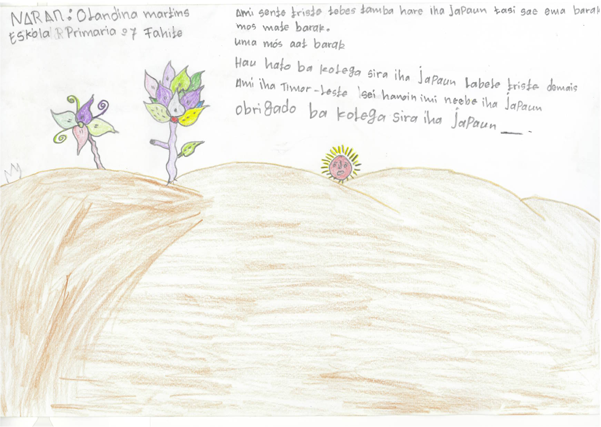 NARAN: Olandina martins
Eskola Primaria 27 Fahite
Ami sente triste tebes tamba hare iha Japaun tasi sae ema barak
mos mate barak.
uma mós aat barak
Hau hato ba kolega sira iha Japaun labele triste demais
Ami iha Timor-Leste sei hanoin imi neebe iha Japaun
obrigado ba kolega sira iha Japaun